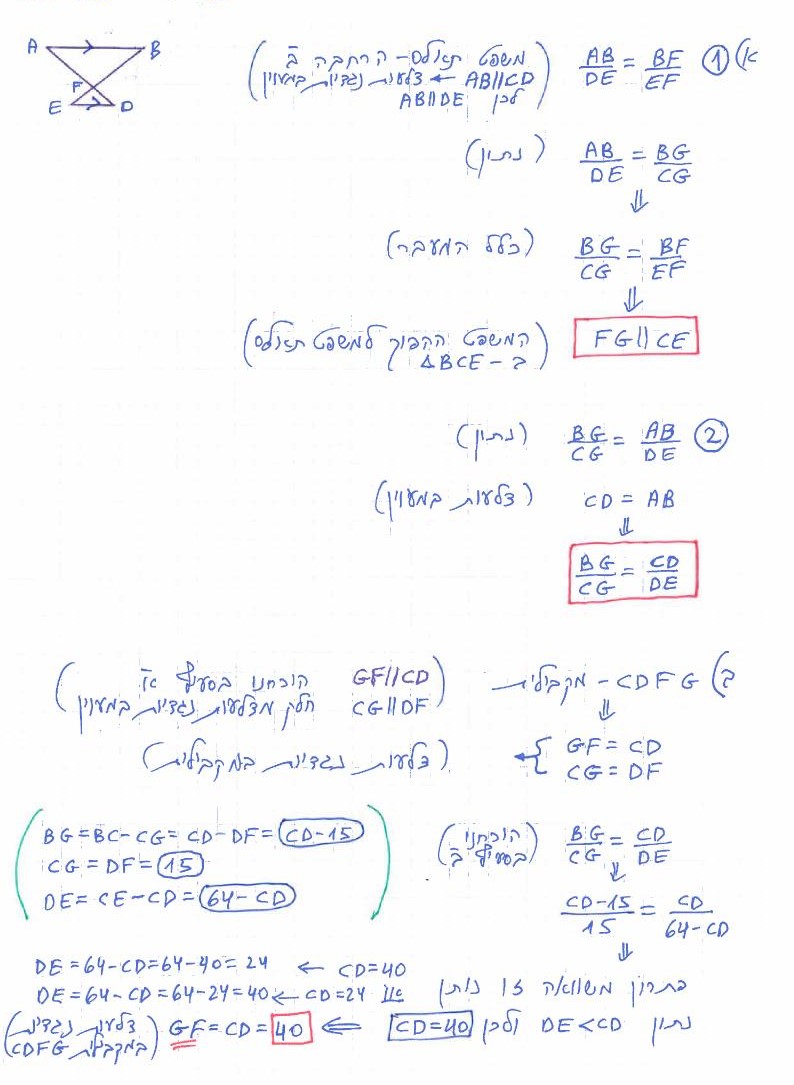 א) ① AB/DE = BF/EF (משפט תאלס - הרחבה ב
AB||CD ← צלעות נגדיות במעוין
לכן AB||DE)
A B
F
E D
AB/DE = BG/CG (נתון)
⇓
BG/CG = BF/EF (כלל המעבר)
⇓
FG||CE (המשפט ההפוך למשפט תאלס
ב- ΔBCE)
② BG/CG = AB/DE (נתון)
CD = AB (צלעות במעוין)
⇓
BG/CG = CD/DE
ב) CDFG - מקבילית (GF||CD הוכחנו בסעיף א
CG||DF חלק מצלעות נגדיות במעוין)
⇓
GF = CD
CG = DF } ← (צלעות נגדיות במקבילית)
BG/CG = CD/DE (הוכחנו
בסעיף ב)
⇓
(CD-15)/15 = CD/(64-CD)
⇓
(BG=BC-CG=CD-DF=CD-15
CG=DF=15
DE=CE-CD=64-CD)
פתרון משוואה זו נותן CD=40 → DE=64-CD=64-40=24
או CD=24 → DE=64-CD=64-24=40
נתון DE<CD ולכן CD=40 ⇐ GF=CD=40 (צלעות נגדיות
במקבילית CDFG)